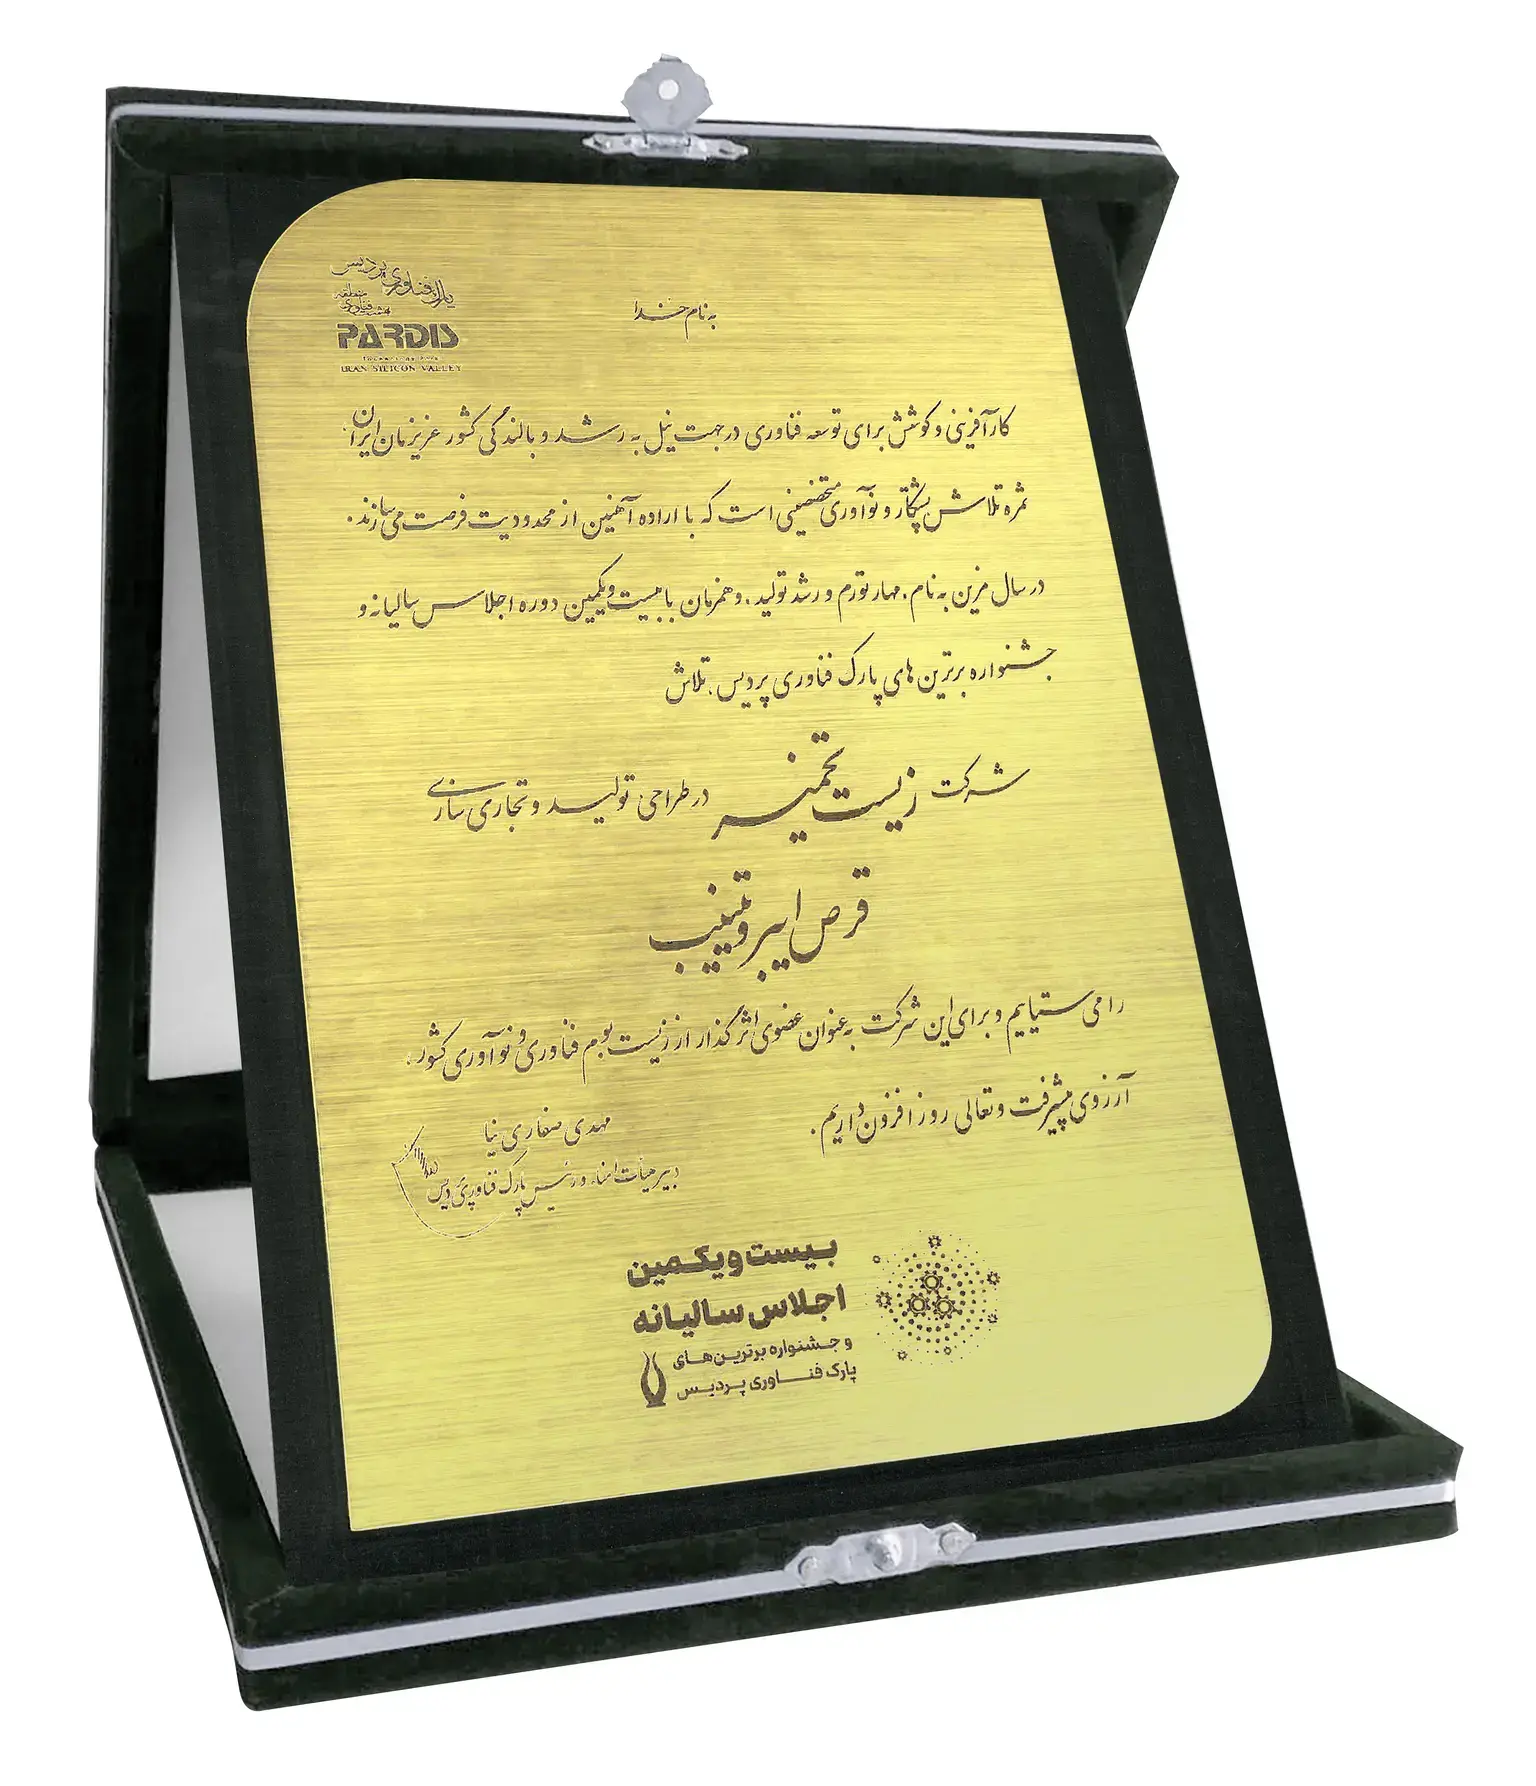 پارک فناوری پردیس
منطقه
PARDIS
Technology Park
IRAN SILICON VALLEY
به نام خدا
کارآفرینی و کوشش برای توسعه فناوری در جهت نیل به رشد و بالندگی کشور عزیزمان ایران،
ثمره تلاش پشتکار و نوآوری متخصصینی است که با اراده آهنین از محدودیت فرصت می سازند.
در سال مزین به نام، مهار تورم و رشد تولید، و همزمان با بیست و یکمین دوره اجلاس سالیانه و
جشنواره برترین های پارک فناوری پردیس، تلاش
شرکت زیست تخمیر در طراحی تولید و تجاری سازی
قرص ایبروتینیب
را می ستاییم و برای این شرکت به عنوان عضوی اثرگذار از زیست بوم فناوری و نوآوری کشور،
آرزوی پیشرفت و تعالی روز افزون داریم.
مهدی صفاری نیا
دبیر هیأت امناء و رئیس پارک فناوری پردیس
بیست و یکمین
اجلاس سالیانه
و جشنواره برترین های
پارک فناوری پردیس